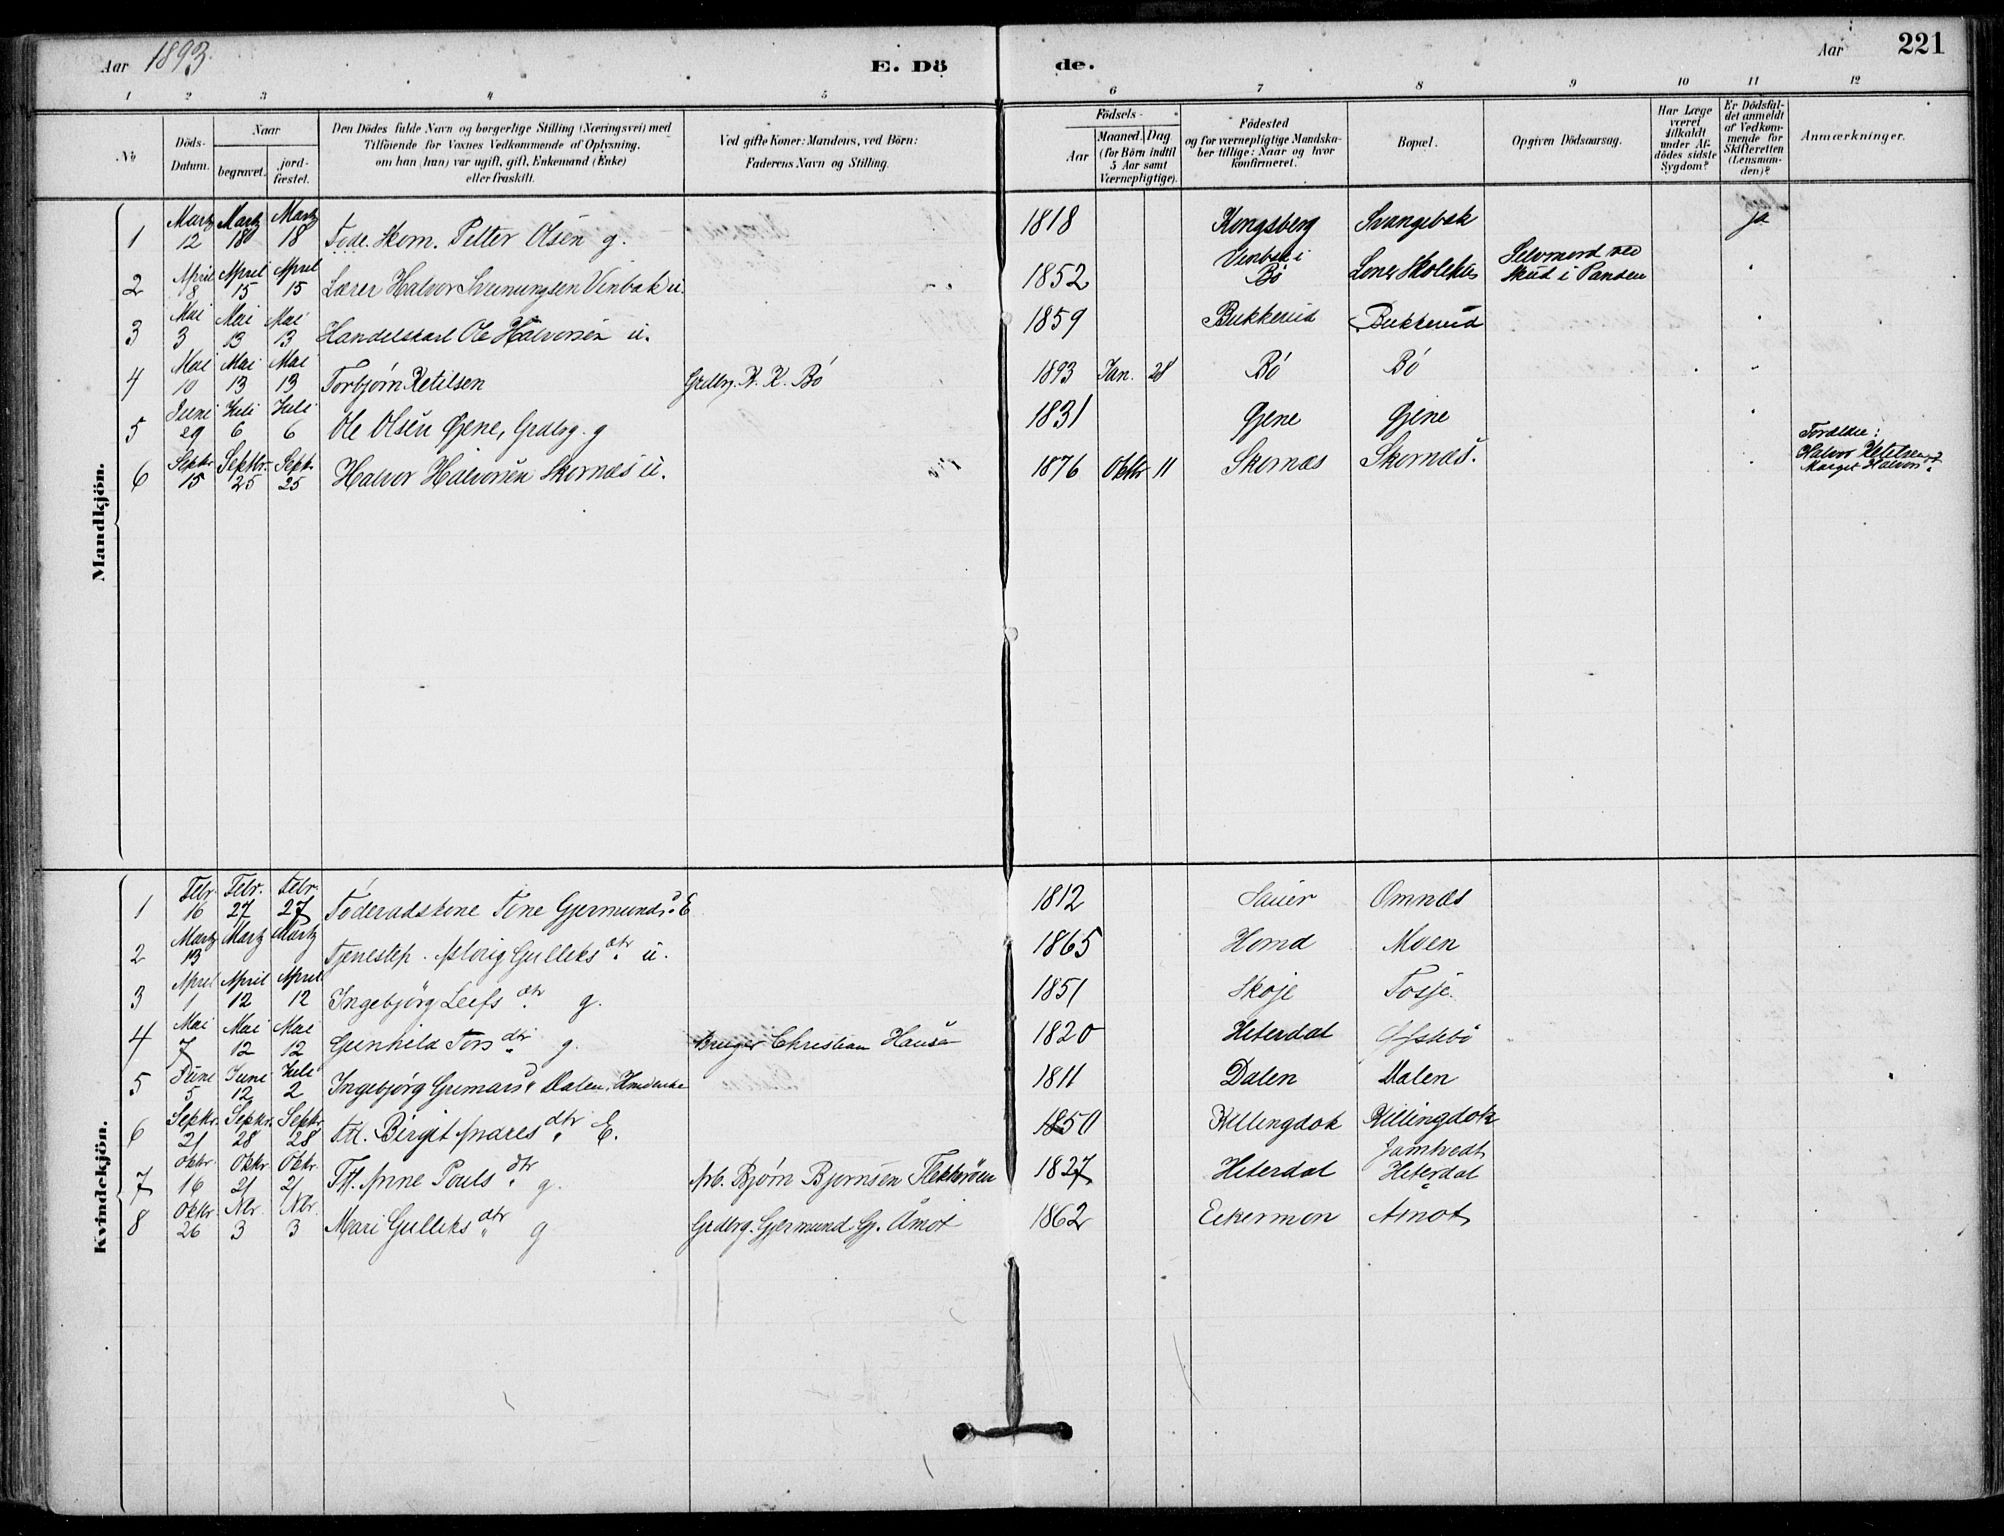 Aar 1893. E. Dö de. Aar 221
1 2 3 4 5 6 7 8 9 10 11 12
No Döds-Datum. Naar begravet. jord-fæstet. Den Dödes fulde Navn og borgerlige Stilling (Næringsvei) med Tilföiende for Voxnes Vedkommende af Oplysning. om han (hun) var ugift, gift, Enkemand (Enke) eller fraskilt. Ved gifte Koner: Mandens, ved Börn: Faderens Navn og Stilling. Födsels- Aar Maaned. Dag. (for Börn indtil 5 Aar samt Værnepligtige). Födested og for værnepligtige Mandskaber tillige: Naar og hvor konfirmeret. Bopæl. Opgiven Dödsaarsag. Har Læge været tilkaldt under Afdödes sidste Sygdom? Er Dödsfaldet anmeldt af Vedkommende for Skifteretten (Lensmanden)? Anmærkninger.
Mandkjön.
1 Martz 12 Martz 18 Martz 18 Föde. Kom. Petter Olsen g. 1818 Kongsberg Svangebak ja
2 April 8 April 15 April 15 Lærer Halvor Sveinungsen Vinbak u. 1852 Vinbak i Bø Lones Skolehus Selvmord ved Skud i Panden
3 Mai 3 Mai 13 Mai 13 Handelskarl Ole Halvorsen u. 1859 Bukkerud Bukkerud
4 Mai 10 Mai 13 Mai 13 Torbjørn Ketilsen Grdbr. K. K. Bø 1893 Jan. 28 Bø Bø
5 Juni 29 Juli 6 Juli 6 Ole Olsen Gjene, Grdbg. g 1831 Gjene Gjene
6 Septbr 15 Septbr. 25 Sept. 25 Halvor Halvorsen Skornæs u. 1876 Oktbr 11 Skornæs Skornæs. Forældre: Halvor Ketilsen og Marget Halvors
Kvindekjön.
1 Febr. 16 Febr. 27 Febr. 27 Föderadskone Tone Gjermundsd. E 1812 Sauer Omnæs
2 Martz 13 Martz Martz Tjenestep. Aslaug Gulleksdtr u. 1865 Homd Moen
3 April 1 April 12 April 12 Ingebjörg Leifsdtr g. 1851 Skoje Fosje.
4 Mai 7 Mai 12 Mai 12 Gunhild Torsdtr g. Bruger Christian Hansen 1820 Hiterdal
5 Juni 5 Juni 12 Juli 2 Ingebjörg Gunnarsd. Dalen. 1811 Dalen Dalen
6 Septbr. 21 Septbr. 28 Septbr 28 Fll. Birgit Andresdtr E. 1850 Killingdok Killingdok
7 Oktbr. 16 Oktbr 21 Oktbr. 21 Fll. Anne Poulsdtr g. Arb. Bjørn Bjørnsen Flekkerøen 1827 Hiterdal Jamtvedt Hiterdal
8 Oktbr 26 Nbr. 3 Nbr. 3 Mari Gulleksdtr g Grdbrg. Gjermund Gj. Åmot 1862 Eckermon Åmot